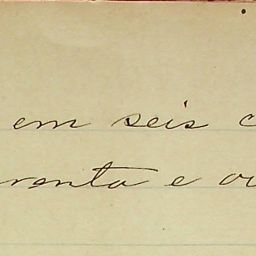 em seis c
renta e ou